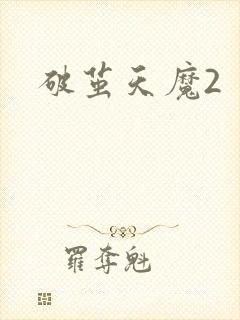 破茧天魔2
羅奪魁